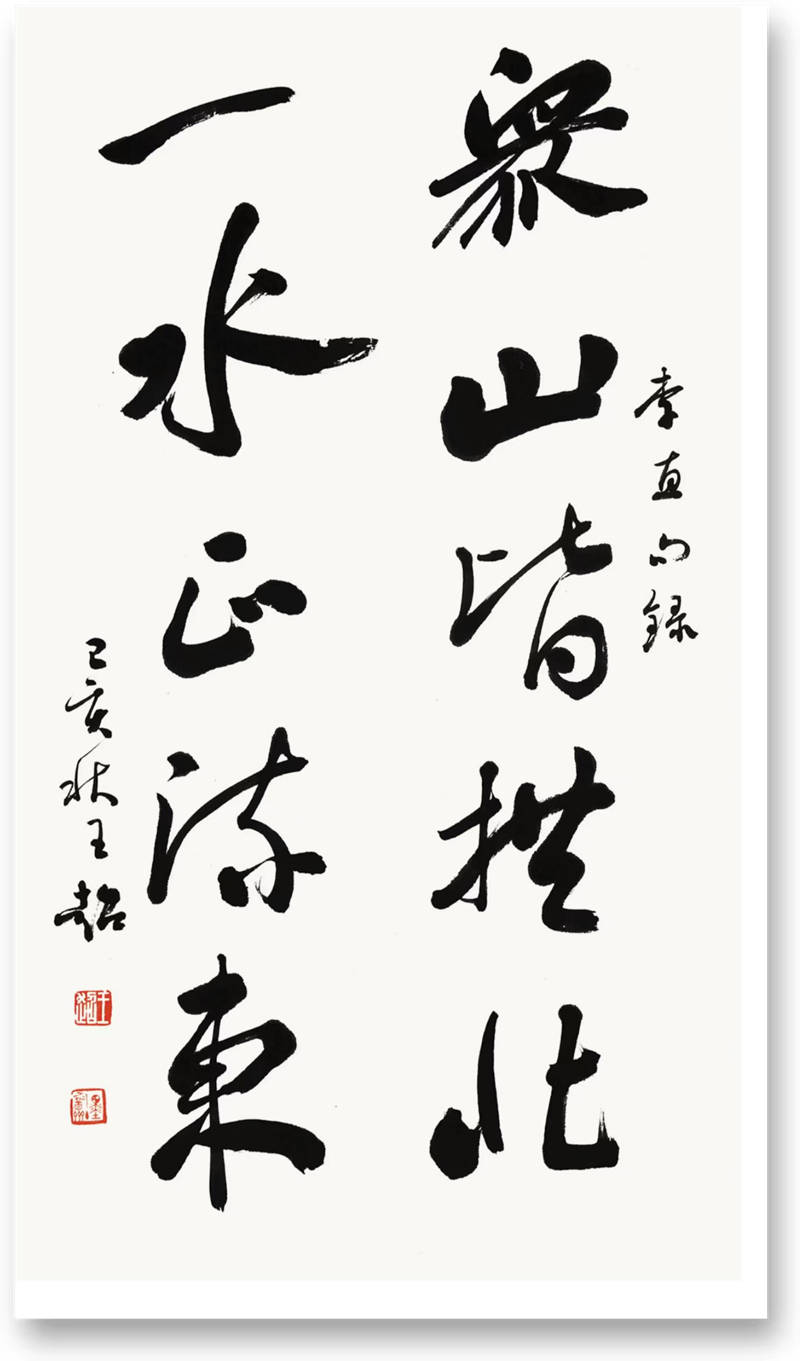 李直句録
眾山皆拱北
一水正流東
己亥秋王超